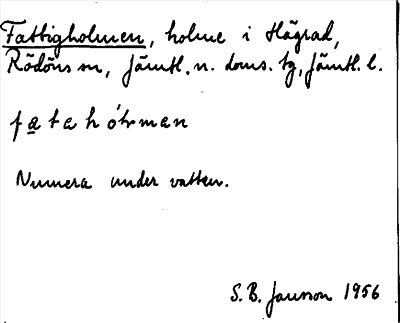 Fattigholmen, holme i Hägrad,
Rödöns sn, Jämtl. n. doms. tg, Jämtl. l.
Numera under vatten.
S. B. Jansson 1956